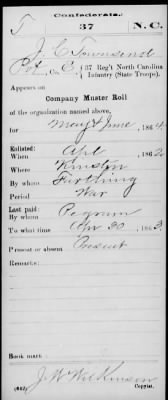 Confederate.
T 37 N.C.
J. C. Townsend
Pvt, Co. E, 37 Reg't North Carolina
Infantry (State Troops).
Appears on
Company Muster Roll
of the organization named above,
for May & June, 1864
Enlisted:
When Apl, 1862
Where Kinston
By whom Farthing
Period War
Last paid:
By whom Pegram
To what time Apr 30, 1863
Present or absent Present
Remarks:
Book mark:
J. W. Wilkinson
(642) Copyist.